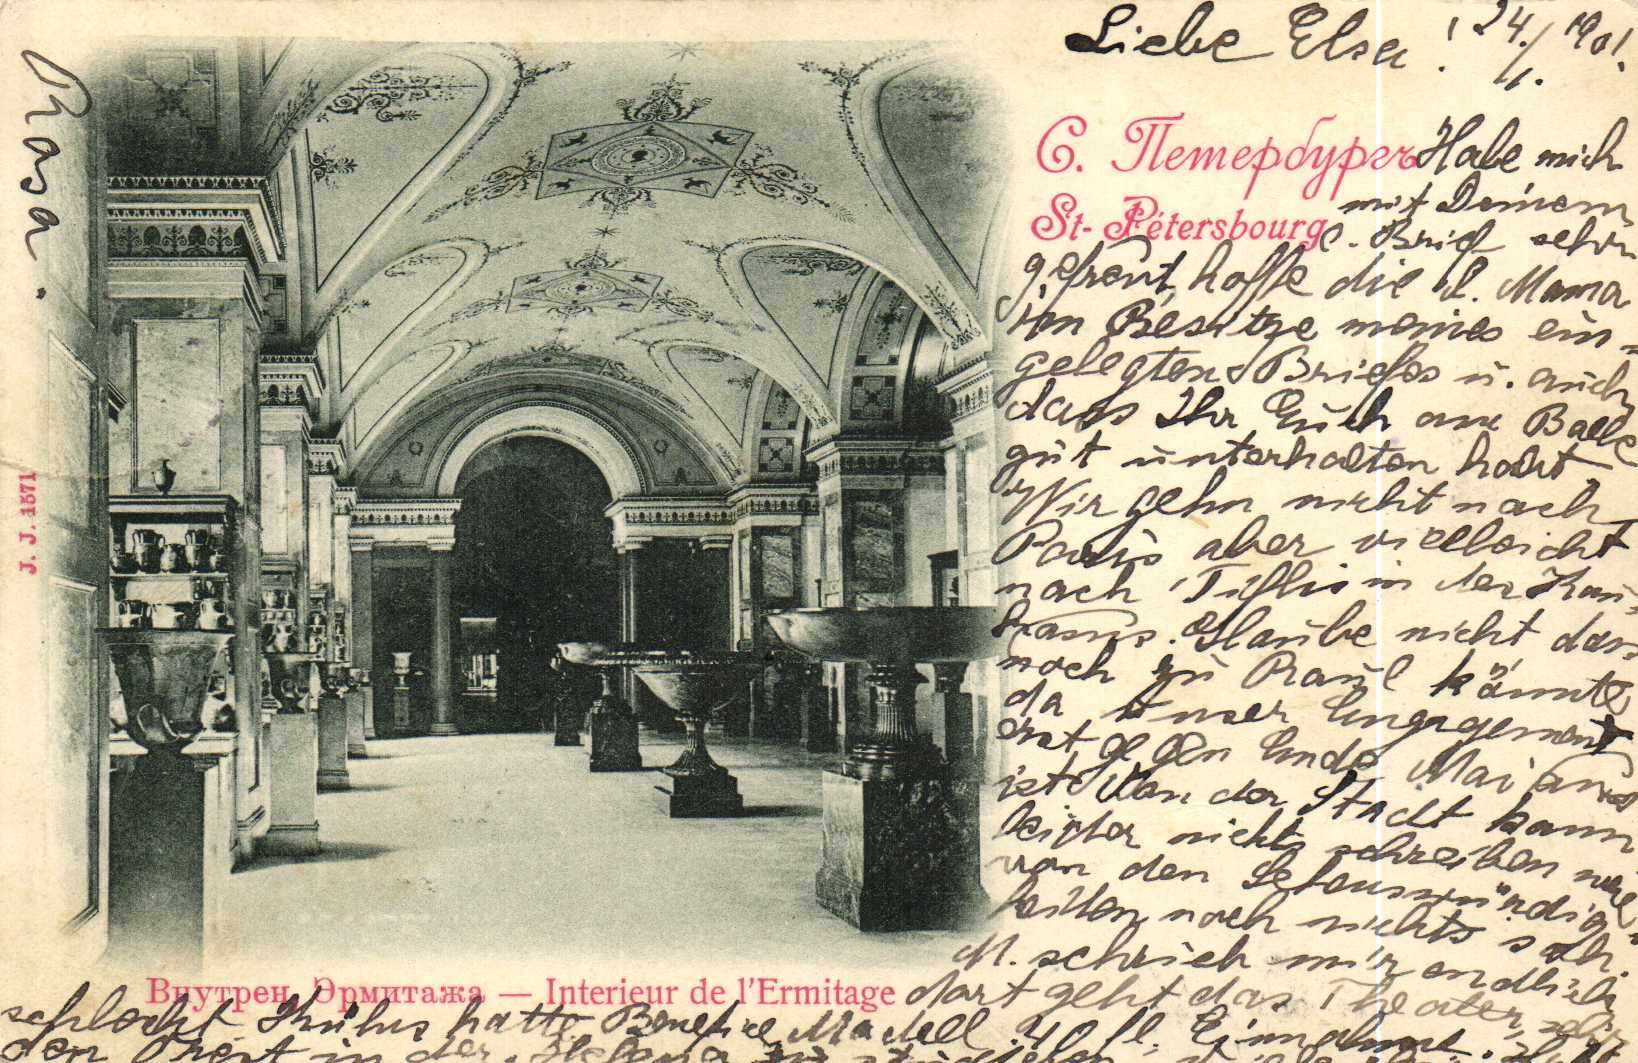 Liebe Elsa! 24./1. 1901.
С. Петербургъ
St-Pétersbourg
Habe mich
mit Deinem
l. Brief sehr
gefreut, hoffe die l. Mama
im Besitze meines ein-
gelegten Briefes u. auch
dass Ihr Euch am Balle
gut unterhalten habt
Wir gehn nicht nach
Paris aber vielleicht
nach Tiflis in der Kau-
kasus. Glaube nicht dass
noch zu Raul könnte,
da unser Engagement
erst gegen Ende Mai
ist. Von der Stadt kann
leider nichts schreiben weil
von den Sehenswürdig-
keiten noch nichts sah.
M. schrieb mir endlich
dort geht das Theater sehr
schlecht hatte Benefice 40 fl. Einnahmt.
den in der
Rosa.
J. J. 1571
Внутрен. Эрмитажа — Interieur de l'Ermitage